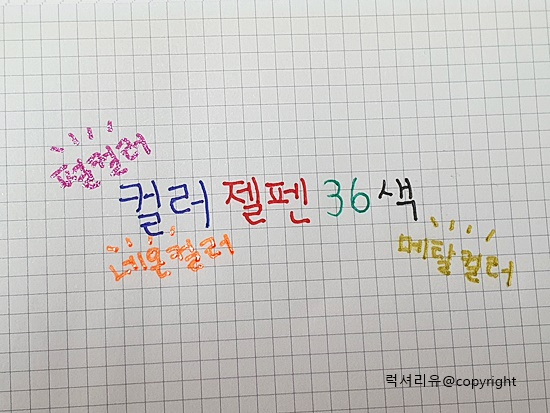 펄컬러
컬러 젤펜 36색
네온컬러
메탈컬러
럭셔리유@copyright